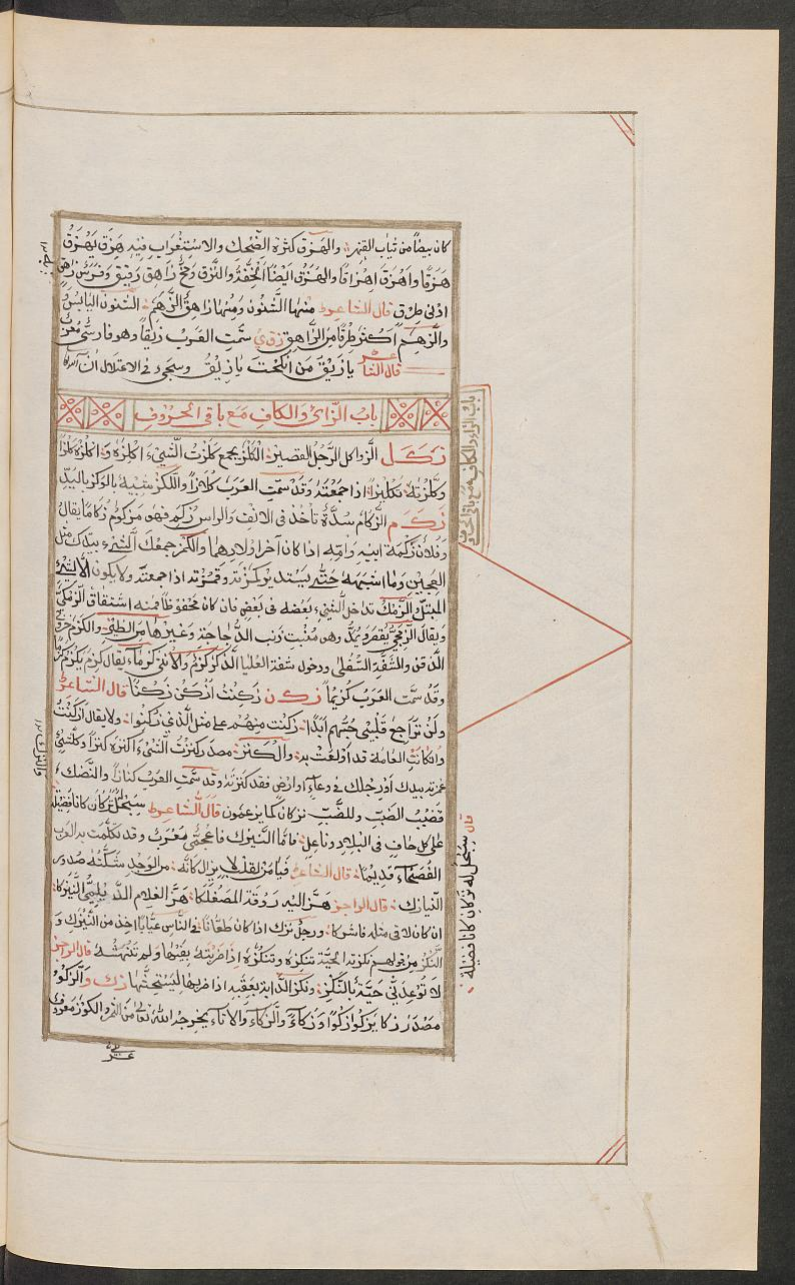 كان بيضًا من ثياب القهز والهزق كثرة الضحك والاستغراب فيه هزق يهزق
هزقًا واهزق اهزاقًا والهزق ايضًا الخفة والنزق ومخ زاهق رقيق وفرس زاهق
اذى طرق قال الشاعر منها الشنون ومنها زاهق الزهم الشنون اليابس
والزهم اكثر طرقًا من الزاهق زوي سمت العرب زيقًا وهو فارسي معرب
قال الشاعر يا زيق من انكحت يا زيق وسيجيء في الاعتلال ان شاء الله
باب الزائ والكاف مع باقي الحروف
زكل الزواكل الرجل القصير الكلز يجمع كلزت الشيء اكلزه واكلزه كلزا
وكلزته تكليزا اذا جمعته وقد سمت العرب كلازًا واللكز شبيه بالوكز باليد
زكم الزكام سدة تأخذ في الانف والراس زكم فهو مزكوم زكامًا يقال
وفلان زكمة ابيه وامه اذا كان آخر اولادهما والكمز جمعك الشيء بيدك مثل
العجين وما اشبهه حتى يستدير كمزته وقمزته اذا جمعته ولا يكون الا الشيء
المبتل والزمك تداخل الشيء بعضه في بعض فان كان محفوظًا فمنه اشتقاق الزمكي
ويقال الزمجى يقصر ويمد وهو منبت ذنب الدجاجة وغيرها من الطير والكزم خروج
الذقن والشفة السفلى ودخول شفة العليا الذكر اكزم والانثى كزماء يقال كزم يكزم كزمًا
وقد سمت العرب كزيمًا زكن زكنت ازكن زكنًا قال الشاعر
ولن تراجع قلبي حبهم ابدًا زكنت منهم على مثل الذي زكنوا ولا يقال ازكنت
وان كانت العامة قد اولعت به والكنز مصدر كنزت الشيء اكنزه كنزًا وكل شيء
غمزته بيدك او رجلك في وعاء او ارض فقد كنزته وقد سمت العرب كنازًا والنزك
قضيب الضب وللضب نزكان كما يزعمون قال الشاعر سبحل له نزكان كانا فضيلة
على كل حاف في البلاد وناعل فاما النيزك فاعجمي معرب وقد تكلمت به العرب
الفصحاء قديمًا قال الشاعر فيا من لقلب لا يزال كانه من الوجد شكته صدور
النيازك قال الراجز هز اليه روقه المصعلكا هز الغلام الديلمي النيزكا
ان كان لاقى مثله فاشركا ورجل نزك اذا كان طعانًا في الناس عيابًا اخذ من النيزك و
النكز من قولهم نكزته الحية تنكزه وتنكزه اذا ضربته بفيها ولم تنهشه قال الراجز
لا توعدني حية بالنكز ونكز الدابة بعقبه اذا ضربها ليستحثها زك و الزكو
مصدر زكا يزكو زكوًا وزكاءً والزكاء والاتاء يخرجه الله تعالى من الثمر الكوز معروف
باب الزاء والكاف مع باقي الحروف
قال سبحل له نزكان كانا فضيلة
عربي